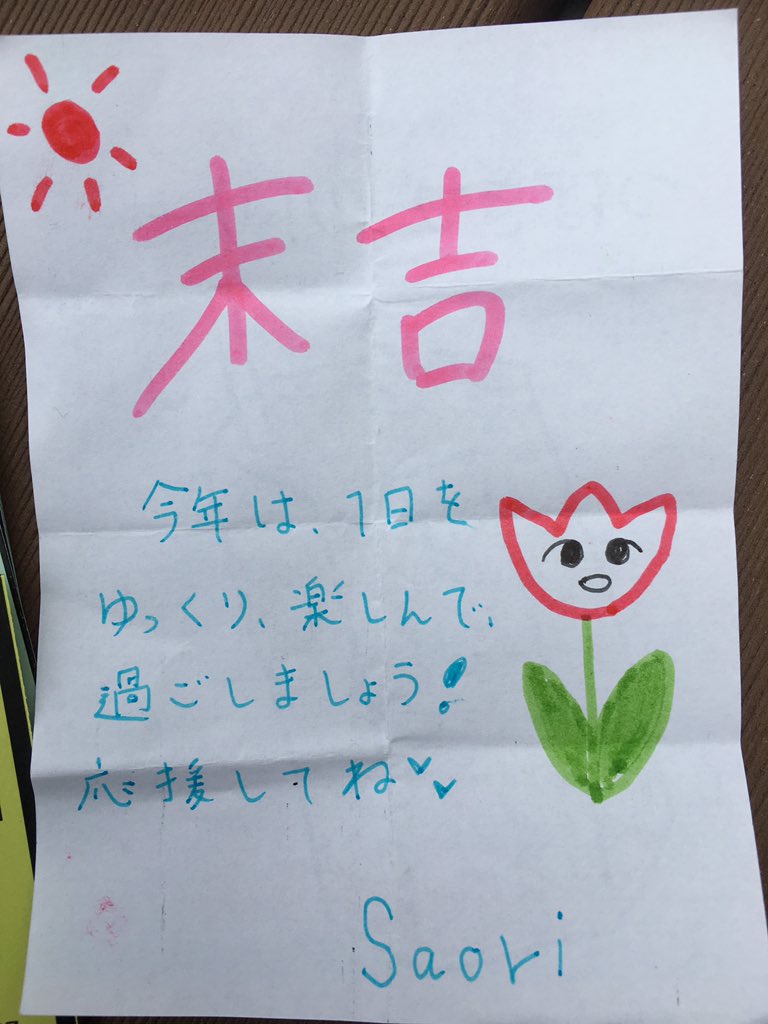 末吉
今年は、1日を
ゆっくり、楽しんで、
過ごしましょう!
応援してね♥♥
Saori